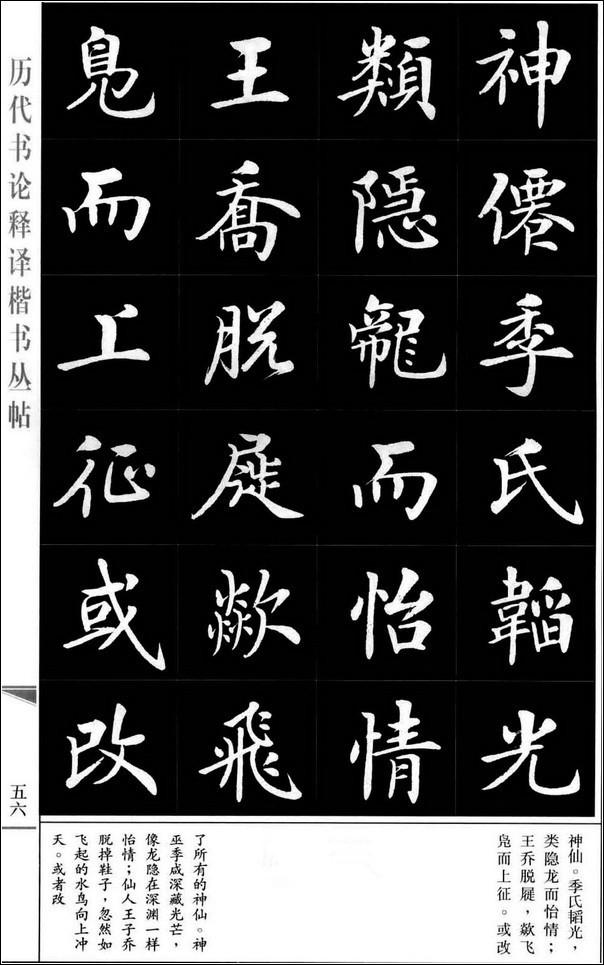 历代书论释译楷书丛帖
五六
神僊季氏韜光
類隱龍而怡情
王喬脱屣歘飛
鳧而上征或改
神仙。季氏韬光，
类隐龙而怡情；
王乔脱屣，歘飞
凫而上征。或改
了所有的神仙。神
巫季咸深藏光芒，
像龙隐在深渊一样
怡情；仙人王子乔
脱掉鞋子，忽然如
飞起的水鸟向上冲
天。或者改